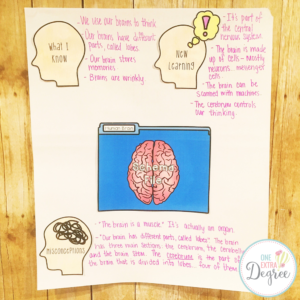 What I Know
- We use our brain to think
- Our brains have different parts, called lobes
- Our brain stores memories
- Brains are wrinkly
New Learning
- It's part of the central nervous system
- The brain is made up of cells - mostly neurons... messenger cells
- The brain can be scanned with machines
- The cerebrum controls our thinking
Misconceptions
- "The brain is a muscle." It's actually an organ.
- "Our brain has different parts, called lobes" The brain has three main sections, the cerebrum, the cerebellum and the brain stem. The cerebrum is the part of the brain that is divided into lobes... four of them
ONE EXTRA Degree